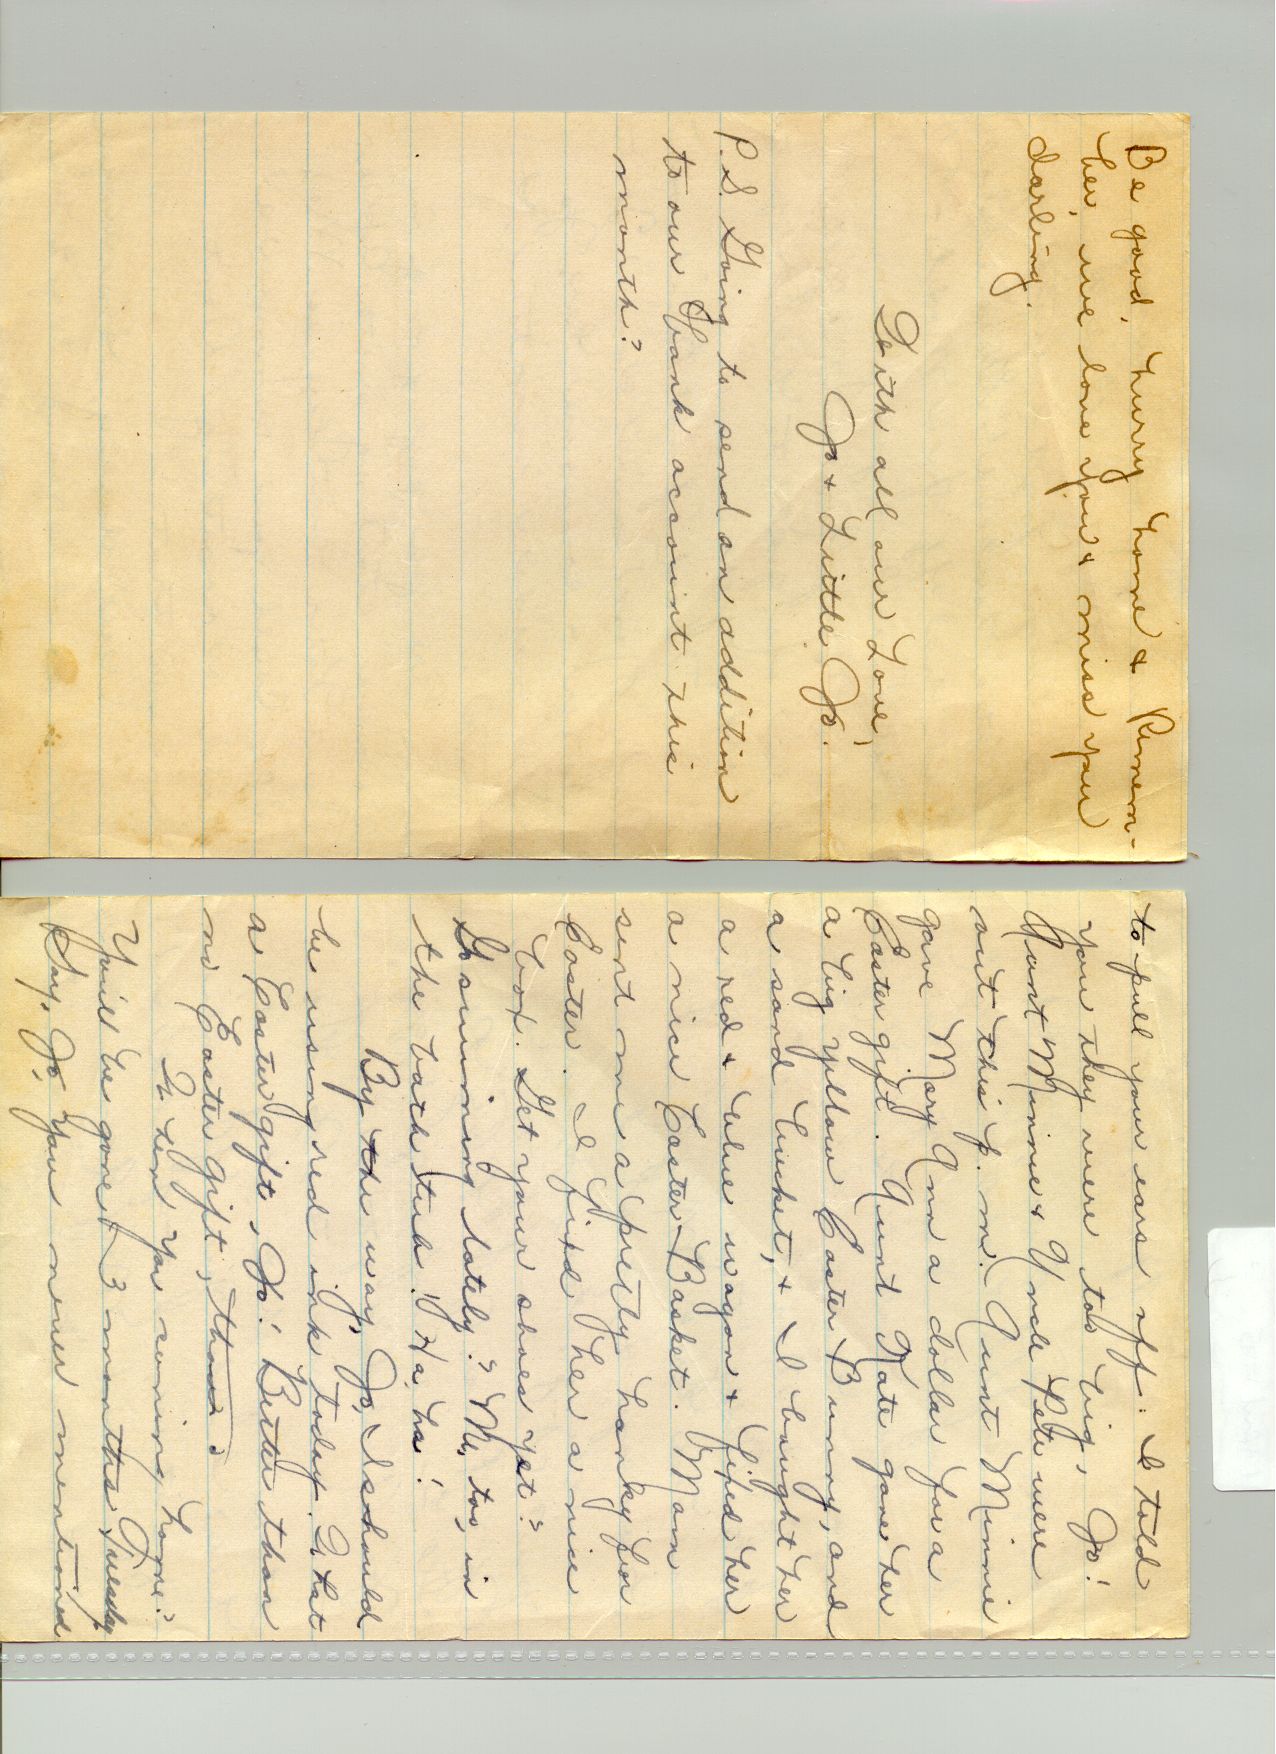 Be good, hurry home & Remem-
ber, we love you & miss you
darling.
With all our Love,
Jo & Little Jo.
P.S. Going to send an addition
to our bank account this
month?
to pull your ears off. I told
you they were too big, Jo!
Aunt Minnie & Uncle Pete were
out this p.m. Aunt Minnie
gave Mary Ann a dollar for a
Easter gift. Aunt Kate gave her
a big yellow Easter Bunny, and
a sand bucket, & I bought her
a red & blue wagon & fixed her
a nice Easter Basket. Mom
sent me a pretty hanky for
Easter. I fixd her a nice
box. Get your shoes yet?
Go swimming lately? Me, too, in
the bath tub! Ha, ha!
By the way, Jo, I should
be using red ink today. What
a Easter gift, Jo! Better than
no Easter gift,
When you coming home?
You'll be gone 3 months, Tuesday.
Say, Jo, you never mentioned